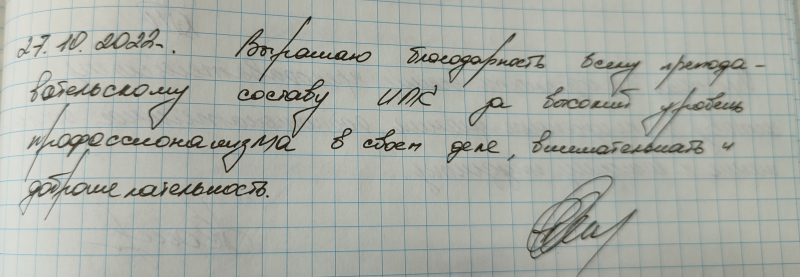 27.10.2022г. Выражаю благодарность всему препода-
вательскому составу ИПК за высокий уровень
профессионализма в своем деле, внимательность и
доброжелательность.